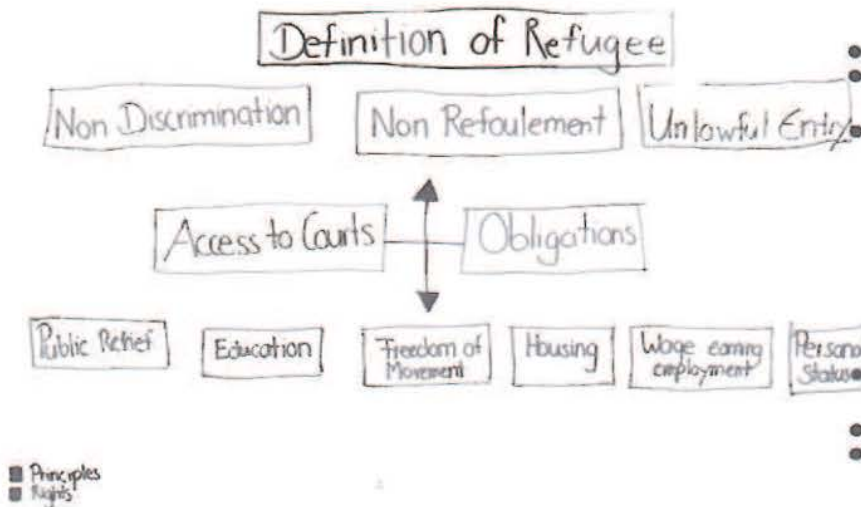 Definition of Refugee
Non Discrimination
Non Refoulement
Unlowful Entry
Access to Courts
Obligations
Public Relief
Education
Freedom of
Movement
Housing
Wage earning
employment
Persona
Status
Principles
Rights